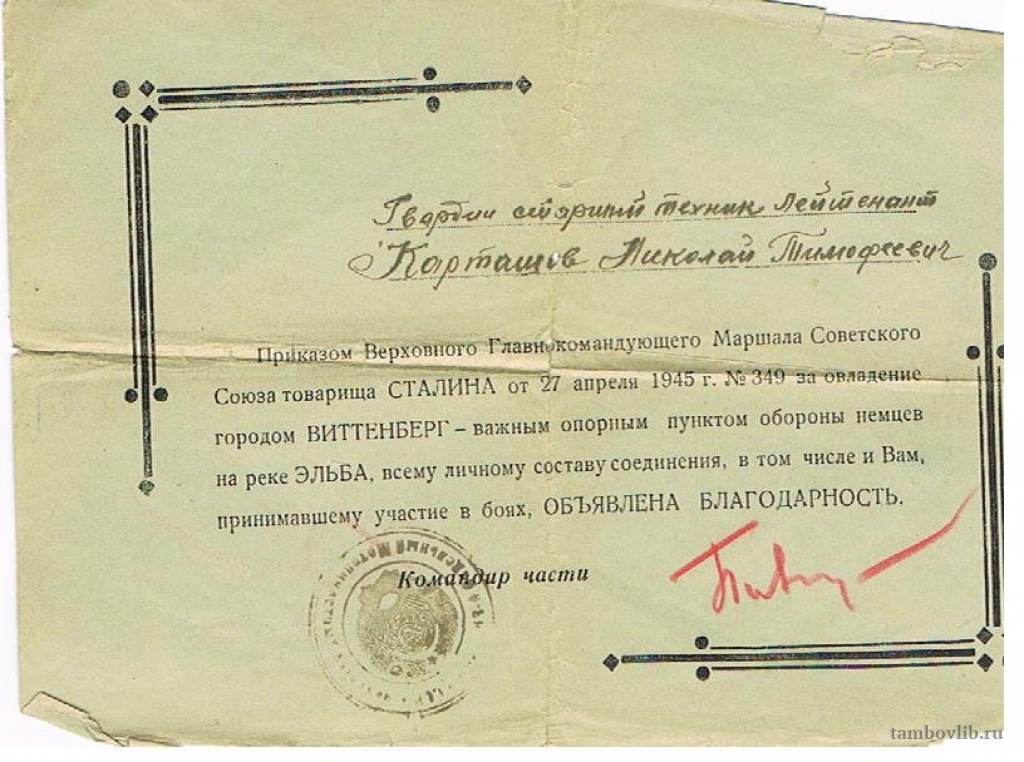 Гвардии старший техник лейтенант
Карташов Николай Тимофеевич
Приказом Верховного Главнокомандующего Маршала Советского
Союза товарища СТАЛИНА от 27 апреля 1945 г. № 349 за овладение
городом ВИТТЕНБЕРГ – важным опорным пунктом обороны немцев
на реке ЭЛЬБА, всему личному составу соединения, в том числе и Вам,
принимавшему участие в боях, ОБЪЯВЛЕНА БЛАГОДАРНОСТЬ.
Командир части
tambovlib.ru